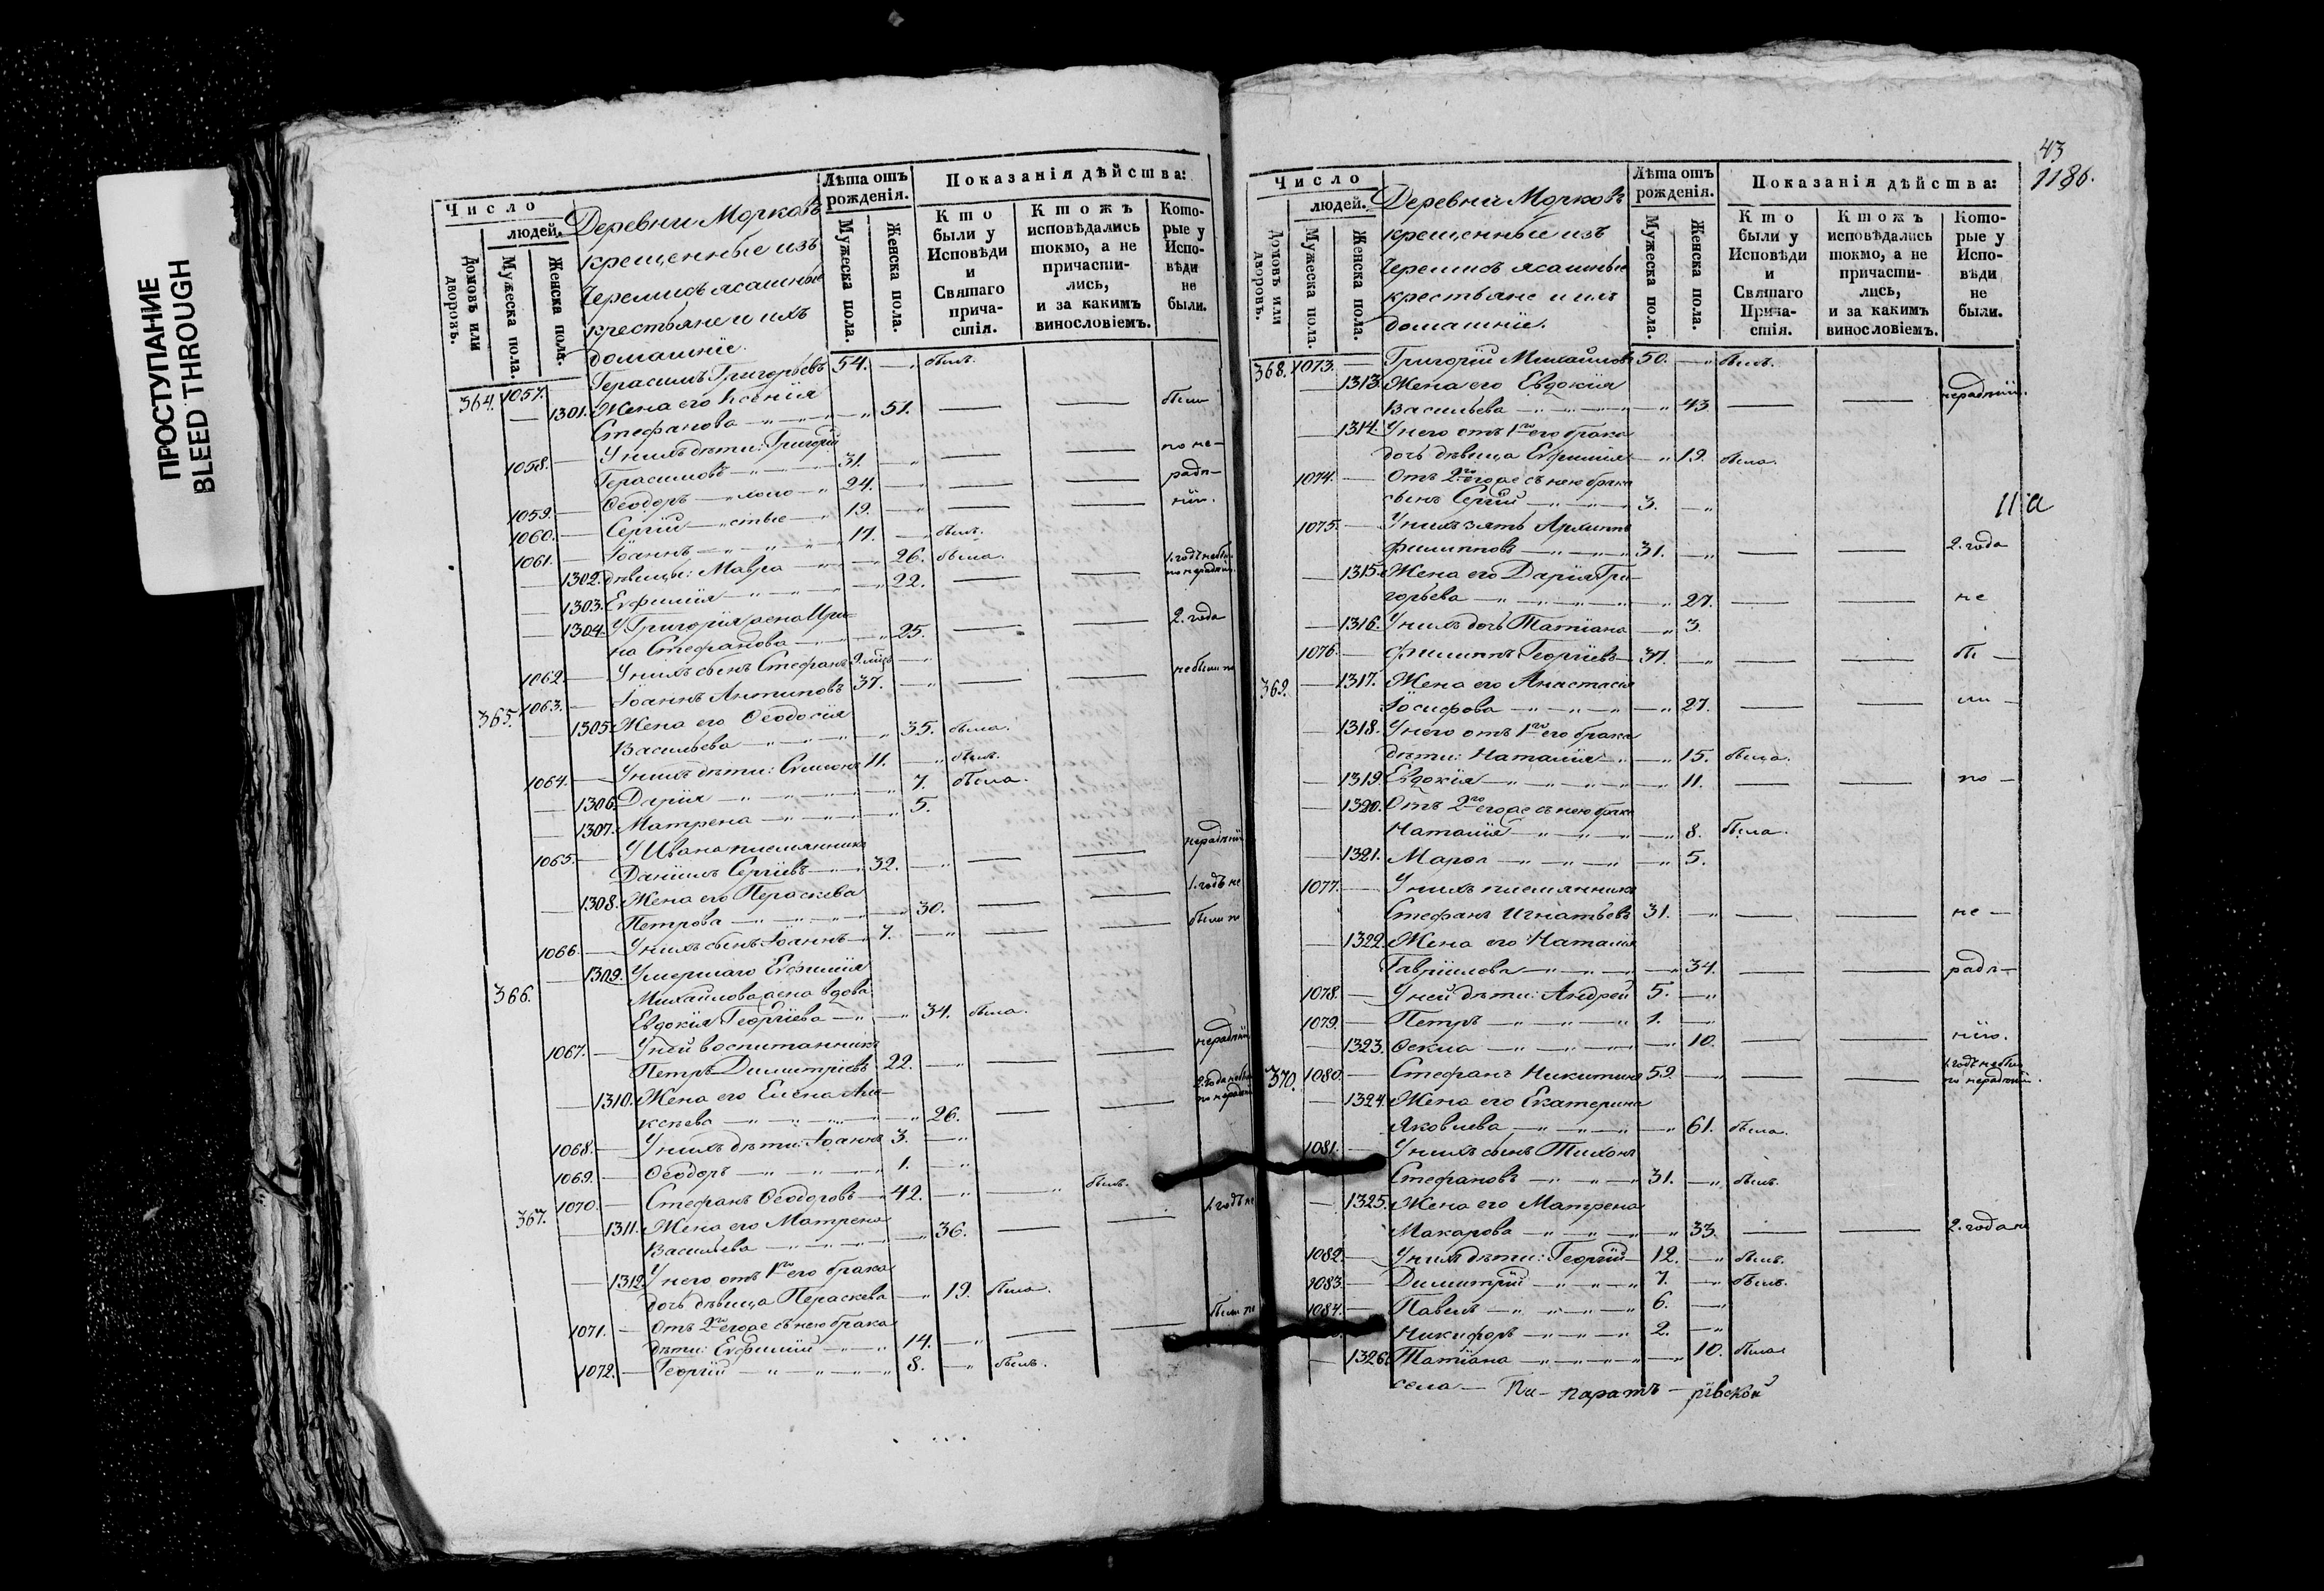 ПРОСТУПАНИЕ
BLEED THROUGH
Число
людей.
Домовъ или дворовъ.
Мужеска пола.
Женска пола.
Деревни Морковъ
крещенные изъ
Черемисъ ясашные
крестьяне и ихъ
домашніе.
Лѣта отъ рожденія.
Мужеска пола.
Женска пола.
Показанія дѣйства:
Кто были у Исповѣди и Святаго прича-стія.
Ктожъ исповѣдались токмо, а не причасти-лись, и за какимъ винословіемъ.
Кото-рые у Испо-вѣди не были.
364. 1057. — Герасимъ Григорьевъ 54. — " былъ.
— 1301. Жена его Ксенія
Стефанова — " — " — 51. — — были
1058. — У нихъ дѣти: Григорій
Герасимовъ — " — 31. — " — — по не-
1059. — Ѳеодоръ — " — 24. — " — — радѣ-
1060. — Сергій — " — 19. — " — — нію.
1061. — Іоаннъ — " — " — 17. — " былъ.
— 1302. дѣвицы: Мавра — " — " 26. была.
— 1303. Евфимія — " — " — " 22. — — 1. годъ не был по нерадѣнію
— 1304. У Григорія жена Ири-
на Стефанова — " — " 25. — — 2. года
1062. — У нихъ сынъ Стефанъ 9. мѣс. — "
365. 1063. — Іоаннъ Антиповъ 37. — " — — не были по
— 1305. Жена его Ѳеодосія
Васильева — " — " — " 35. была.
1064. — У нихъ дѣти: Симеонъ 11. — " былъ.
— 1306. Дарія — " — " — " 7. была.
— 1307. Матрена — " — " — " 5.
1065. — У Ивана племянникъ
Даніилъ Сергіевъ — " 32. — " — — нерадѣнію
— 1308. Жена его Параскева
Петрова — " — " — " 30. — — 1. годъ не
1066. — У нихъ сынъ Іоаннъ — 7. — " — — были по
366. — 1309. Умершаго Евфимія
Михайлова жена вдова
Евдокія Георгіева — " — " 34. была.
1067. — У ней воспитанникъ
Петръ Димитріевъ 22. — " — — нерадѣнію
— 1310. Жена его Елена Але-
ксѣева — " — " — " 26. — — 2. года не был по нерадѣн
1068. — У нихъ дѣти: Іоаннъ 3. — "
1069. — Ѳеодоръ — " — " — 1. — "
367. 1070. — Стефанъ Ѳеодоровъ — " 42. — " — " былъ.
— 1311. Жена его Матрена
Васильева — " — " — " 36. — — 1. годъ не
— 1312. У него отъ 1го его брака
дочь дѣвица Параскева — " 19. была.
1071. — Отъ 2го его же съ нею брака
дѣти: Евфимій — " — 14. — " — — были по
1072. — Георгій — " — " — 8. — " былъ.
43
1186.
Число
людей.
Домовъ или дворовъ.
Мужеска пола.
Женска пола.
Деревни Морковъ
крещенные изъ
Черемисъ ясашные
крестьяне и ихъ
домашніе.
Лѣта отъ рожденія.
Мужеска пола.
Женска пола.
Показанія дѣйства:
Кто были у Исповѣди и Святаго Прича-стія.
Ктожъ исповѣдались токмо, а не причасти-лись, и за какимъ винословіемъ.
Кото-рые у Испо-вѣди не были.
368. 1073. — Григорій Михайловъ 50. — " былъ.
— 1313. Жена его Евдокія
Васильева — " — " — " 43. — — нерадѣнію.
— 1314. У него отъ 1го его брака
дочь дѣвица Евфимія — " 19. была.
1074. — Отъ 2го его же съ нею брака
сынъ Сергій — " — " 3. — "
11 а
1075. — У нихъ зять Архиппъ
Филипповъ — " — " 31. — " — — 2. года
— 1315. Жена его Дарія Гри-
горьева — " — " — " 27. — — не
— 1316. У нихъ дочь Татіана — " 3.
369. 1076. — Филиппъ Георгіевъ — 37. — " — — бы —
— 1317. Жена его Анастасія
Іосифова — " — " — " 27. — — ли —
— 1318. У него отъ 1го его брака
дѣти: Наталія — " — " 15. была.
— 1319. Евдокія — " — " — " 11. — — по —
— 1320. Отъ 2го его же съ нею брака
Наталія — " — " — " 8. была.
— 1321. Марѳа — " — " — " 5.
1077. — У нихъ племянникъ
Стефанъ Игнатьевъ 31. — " — — не —
— 1322. Жена его Наталія
Гавріилова — " — " — " 34. — — радѣ —
1078. — У ней дѣти: Андрей 5. — "
1079. — Петръ — " — " — 1. — "
— 1323. Ѳекла — " — " — " 10. — — нію.
370. 1080. — Стефанъ Никитинъ 59. — " — — 1. годъ не был по нерадѣнію.
— 1324. Жена его Екатерина
Яковлева — " — " — " 61. была.
1081. — У нихъ сынъ Тихонъ
Стефановъ — " — " 31. — " былъ.
— 1325. Жена его Матрена
Макарова — " — " — " 33. — — 2. года не
1082. — У нихъ дѣти: Георгій — 12. — " былъ.
1083. — Димитрій — " — " 7. — " былъ.
1084. — Павелъ — " — " — 6. — "
Никифоръ — " — " 2. — "
— 1326. Татіана — " — " — " 10. была
села —